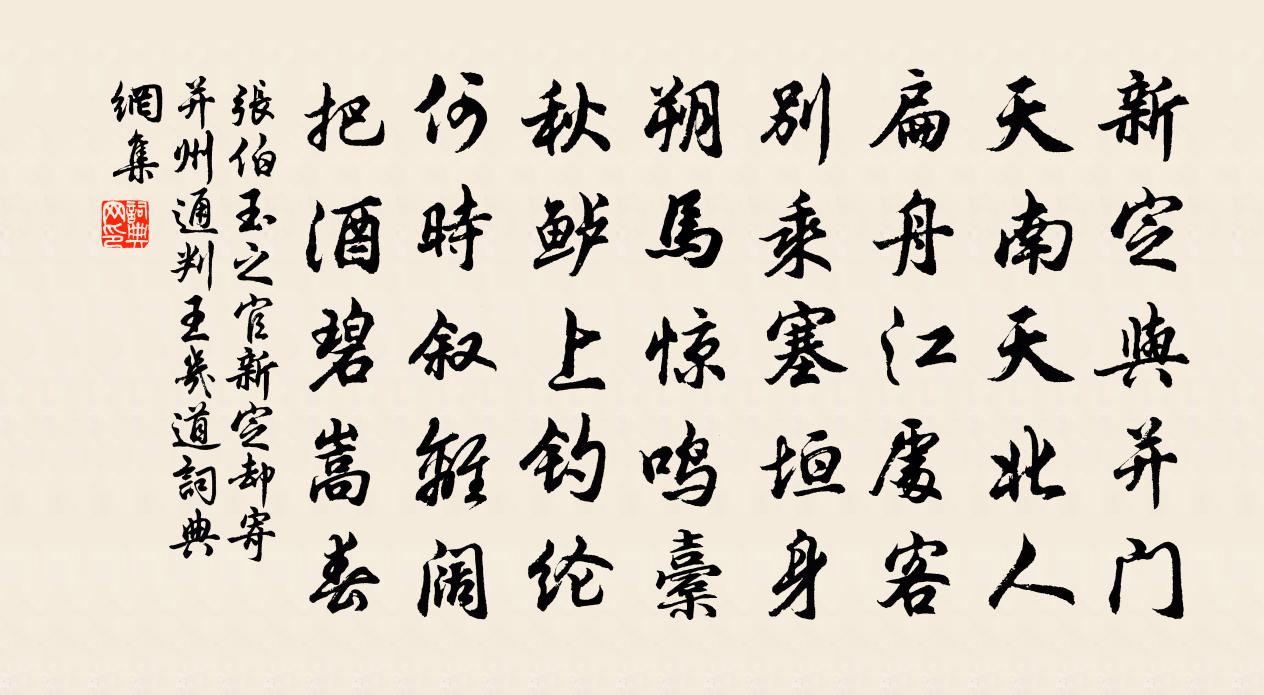 新定與并门
天南天北人
扁舟江處客
别乘塞垣身
朔馬惊鸣橐
秋鲈上钓纶
何時叙離阔
把酒碧嵩春
張伯玉之官新定却寄
并州通判王幾道詞典
網集
詞典
网印